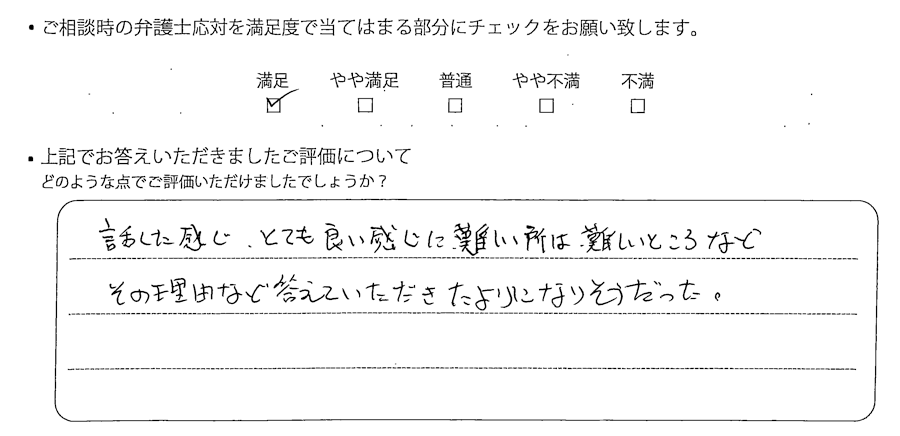 ・ご相談時の弁護士応対を満足度で当てはまる部分にチェックをお願い致します。
満足 やや満足 普通 やや不満 不満
・上記でお答えいただきましたご評価について
どのような点でご評価いただけましたでしょうか？
話した感じ、とても良い感じに難しい所は難しいところなど
その理由など答えていただきたよりになりそうだった。